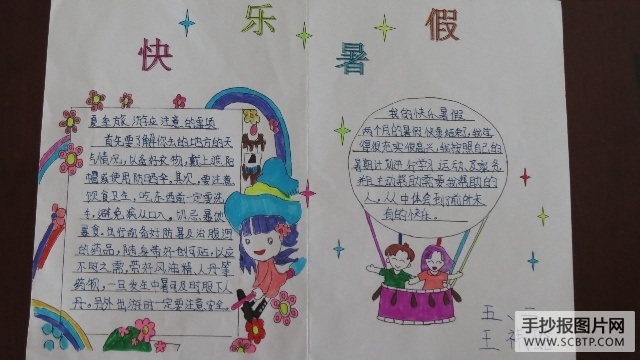 快乐暑假
夏季旅游应注意的事项
首先要了解你去的地方的天
气情况,以备好衣物,戴上遮阳
帽或使用防晒伞。其次,要注意
饮食卫生,吃东西前一定要洗
手,避免病从口入。切忌暴饮
暴食,也行前备好防暑及治腹泻
的药品,随身带好创可贴,以应
不时之需,带好风油精、人丹等
药物,一旦发生中暑可及时服下人
丹。另外出游时一定要注意安全。
我的快乐暑假
两个月的暑假快要结束了,我过
得很充实很高兴,我按照自己的
暑期计划进行学习、运动、及家务
和主动帮助需要我帮助的
人,从中体会到了前所未
有的快乐。
五
王
手抄报图片网
WWW.SCBTP.COM